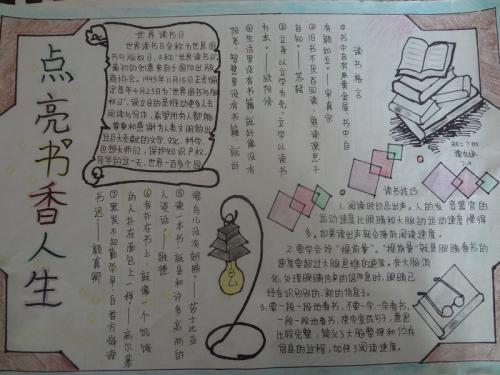 点亮书香人生
世界读书日
世界读书日全称世界图
书与版权日,又称“世界读书日”,
最初的创意来自于国际出版
商协会。1995年11月15日正式确
定每年4月23日为“世界图书与版
权日”,设立目的是推动更多人去
阅读与写作,希望所有人都能
尊重和感谢为人类文明做出
过巨大贡献的文学,文化,科学,
思想大师们,保护知识产权。
每年的这一天,世界一百多个国
读书格言
①书中自有黄金屋,书中自
有颜如玉。——宋真宗
②旧书不厌百回读,熟读深思子
自知。——苏轼
③立身以立学为先,立学以读书
为本。——欧阳修
④生活里没有书籍,就好像没有
阳光;智慧里没有书籍,就好
像鸟儿没有翅膀——莎士比亚
⑤读一本书,就是和许多高尚的
人谈话——歌德
⑥我扑在书上,就像一个饥饿
的人扑在面包上一样——高尔基
⑦黑发不知勤学早,白首方悔读
书迟——颜真卿
读书技巧
1.阅读时勿忌出声。人的发音器官的
运动速度比眼睛和大脑的运动速度慢得
多。如果读出声就会降阅读速度。
2.要学会抓“提前量”。“提前量”就是眼睛看书的
速度要超过大脑思维的速度。在大脑消
化处理眼睛传来的信息时,眼睛已
经在识别别的、新的信息了。
3.要一段一段地看书,不要一字一字看书,
一段一段地看书,使字变成句子,意思
比较完整,简化了大脑整理和贮存
信息的过程,加快了阅读速度。